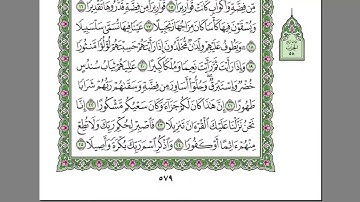 مِّن فِضَّةٍ وَأَكْوَابٍ كَانَتْ قَوَارِيرَا۠ ١٥ قَوَارِيرَا۟ مِن فِضَّةٍ قَدَّرُوهَا تَقْدِيرًا ١٦
وَيُسْقَوْنَ فِيهَا كَأْسًا كَانَ مِزَاجُهَا زَنجَبِيلًا ١٧ عَيْنًا فِيهَا تُسَمَّىٰ سَلْسَبِيلًا
١٨ وَيَطُوفُ عَلَيْهِمْ وِلْدَٰنٌ مُّخَلَّدُونَ إِذَا رَأَيْتَهُمْ حَسِبْتَهُمْ لُؤْلُؤًا مَّنثُورًا
١٩ وَإِذَا رَأَيْتَ ثَمَّ رَأَيْتَ نَعِيمًا وَمُلْكًا كَبِيرًا ٢٠ عَٰلِيَهُمْ ثِيَابُ سُندُسٍ
خُضْرٌ وَإِسْتَبْرَقٌ وَحُلُّوٓا۟ أَسَاوِرَ مِن فِضَّةٍ وَسَقَىٰهُمْ رَبُّهُمْ شَرَابًا
طَهُورًا ٢١ إِنَّ هَٰذَا كَانَ لَكُمْ جَزَآءً وَكَانَ سَعْيُكُم مَّشْكُورًا ٢٢ إِنَّا
نَحْنُ نَزَّلْنَا عَلَيْكَ ٱلْقُرْءَانَ تَنزِيلًا ٢٣ فَٱصْبِرْ لِحُكْمِ رَبِّكَ وَلَا تُطِعْ
مِنْهُمْ ءَاثِمًا أَوْ كَفُورًا ٢٤ وَٱذْكُرِ ٱسْمَ رَبِّكَ بُكْرَةً وَأَصِيلًا ٢٥
٥٧٩
الحزب
٥٨